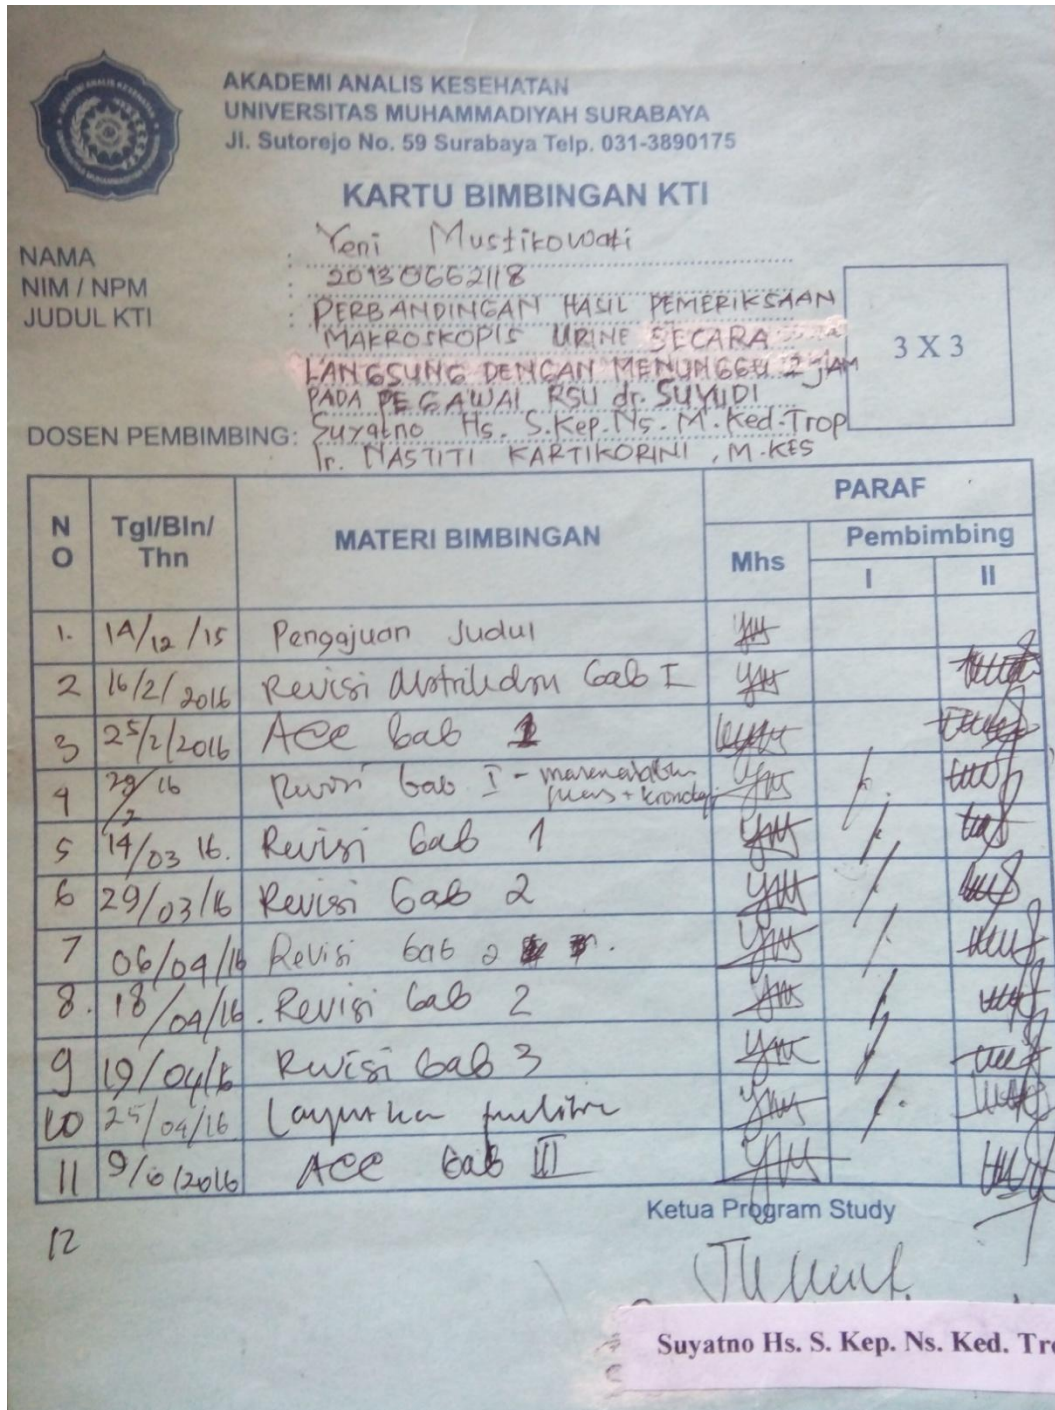 AKADEMI ANALIS KESEHATAN
UNIVERSITAS MUHAMMADIYAH SURABAYA
Jl. Sutorejo No. 59 Surabaya Telp. 031-3890175
KARTU BIMBINGAN KTI
NAMA : Yeni Mustikowati
NIM / NPM : 20130662118
JUDUL KTI : PERBANDINGAN HASIL PEMERIKSAAN
MAKROSKOPIS URINE SECARA
LANGSUNG DENGAN MENUNGGU 2 jAM
PADA PEGAWAI RSU dr. SUYUDI
3 X 3
DOSEN PEMBIMBING: Suyatno Hs. S.Kep.Ns. M.Ked.Trop
Ir. NASTITI KARTIKORINI, M.KES
NO Tgl/Bln/Thn MATERI BIMBINGAN PARAF
Mhs Pembimbing
I II
1. 14/12/15 Pengajuan Judul
2 16/2/2016 Revisi bab I
3 25/2/2016 ACC bab 1
4 29/2 16 Revisi bab I -
5 14/03 16. Revisi bab 1
6 29/03/16 Revisi bab 2
7 06/04/16 Revisi bab 2
8. 18/04/16. Revisi bab 2
9 19/04/16 Revisi bab 3
10 25/04/16
11 9/6/2016 ACC bab III
12
Ketua Program Study
Suyatno Hs. S. Kep. Ns. Ked.